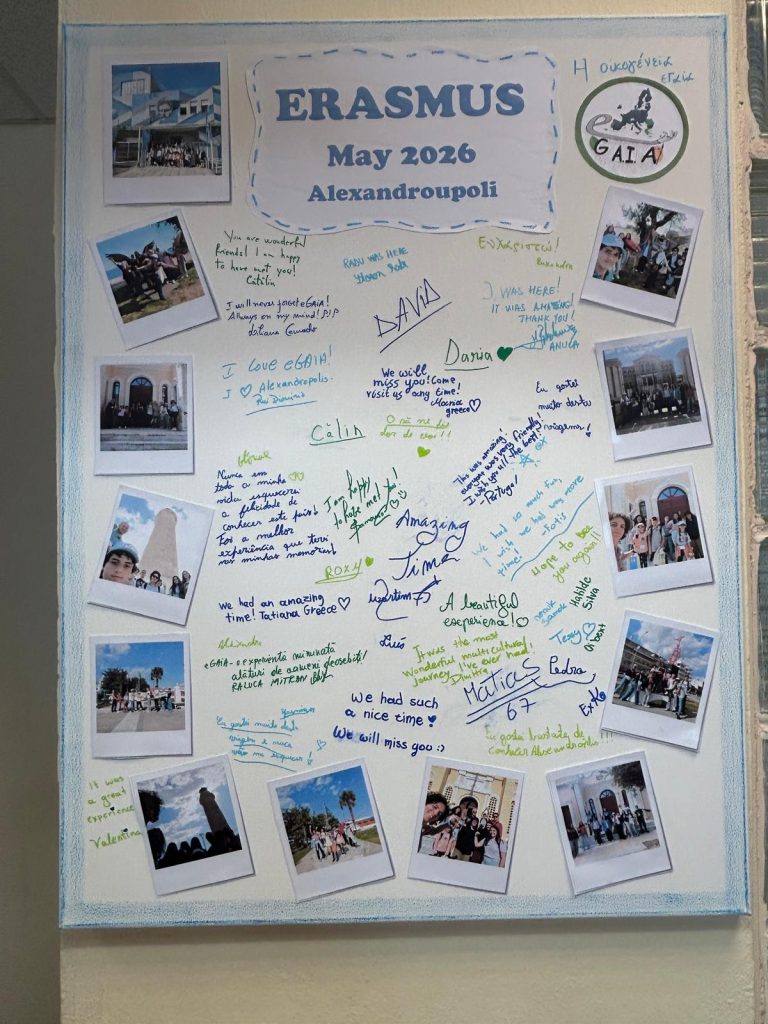 ERASMUS
May 2026
Alexandroupoli
Η οικογένεια
eGAIA
e
G.A.I.A
You are wonderful
friends! I am happy
to have met you!
Cătălin
RADU WAS HERE
Ευχαριστώ!
Ruxandra
I will never forget eGAIA!
Always on my mind! PIP
Liliana
DAVID
I WAS HERE!
IT WAS AMAZING!
THANK YOU!
ANUCA
Daria
I love eGAIA!
I Alexandropolis.
Rui Dionísio
We will
miss you! Come
visit us any time!
Maria
greece
Eu gostei
muito desta
viagem!
Călin
O să ne fie
dor de voi!!
This was amazing!
everyone was very friendly!
I wish you all the best!
-Portugal
Nunca em
toda a minha
vida esquecerei
a felicidade de
conhecer este país!
Foi a melhor
experiência que terei
nas minhas memórias!
I am happy
to have met you!
Amazing
Time
We had so much fun,
I wish we had more
time!
-Fotis
Hope to see
you again!!
ROXY
We had an amazing
time! Tatiana Greece
Martim
A beautiful
experience!
Matilde
Silva
Tessy
Alexandra
eGAIA - o experiență minunată
alături de oameni deosebiți!
RALUCA MITRAN
Luís
It was the most
wonderful multicultural
journey I've ever had!
Dimitra
MATIAS
67
Pedro
We had such
a nice time!
We will miss you :)
Eu gostei muito desta
viagem e nunca
vão me esquecer!
Eu gostei bastante de
conhecer Alexandroupolis!!!
It was
a great
experience
Valentina